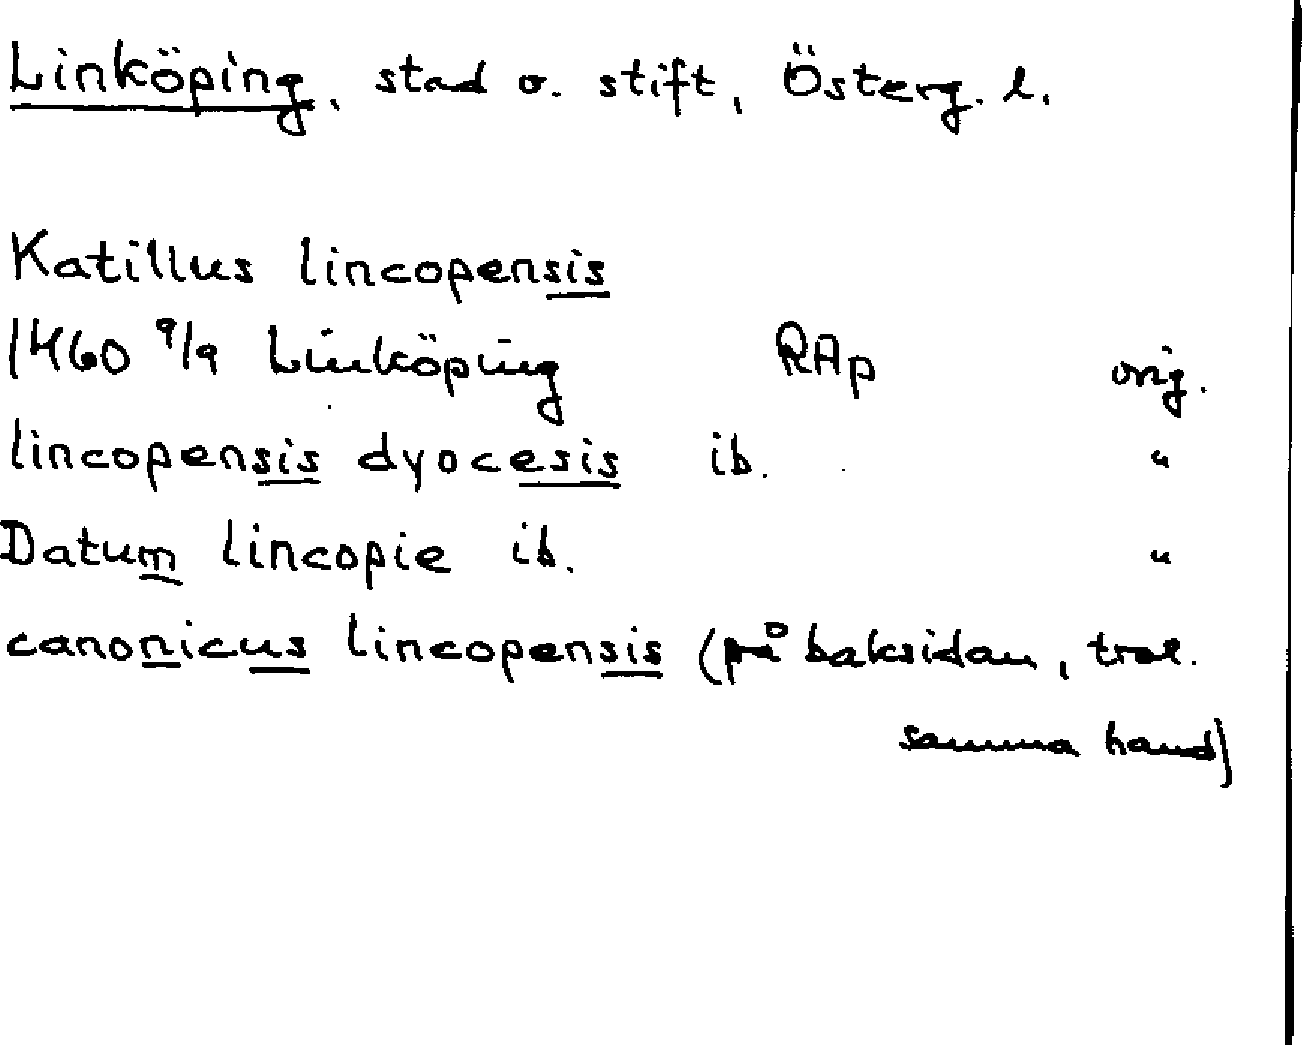 Linköping, stad o. stift, Österg. l.
Katillus lincopensis
1460 9/9 Linköping RAp orig.
lincopensis dyocesis ib. "
Datum lincopie ib. "
canonicus lincopensis (på baksidan, trol.
samma hand)